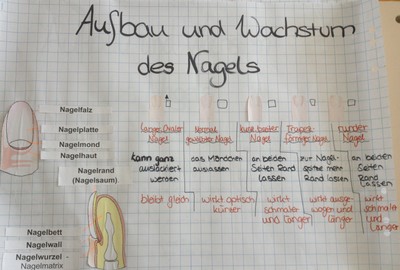 Aufbau und Wachstum
des Nagels
Nagelfalz
Nagelplatte
Nagelmond
Nagelhaut
Nagelrand
(Nagelsaum)
Nagelbett
Nagelwall
Nagelwurzel -
Nagelmatrix
langer Ovaler
Nagel
Normal
gewölbter Nagel
kurz breiter
Nagel
Trapez-
förmiger Nagel
runder
Nagel
kann ganz
auslackiert
werden
das Möndchen
auslassen
an beiden
Seiten Rand
lassen
zur Nagel-
spitze mehr
Rand lassen
an beiden
Seiten
Rand
lassen
bleibt gleich
wirkt optisch
kürzer
wirkt
schmaler
und länger
wirkt ausge-
wogen und
länger
wirkt
schmaler
und
länger